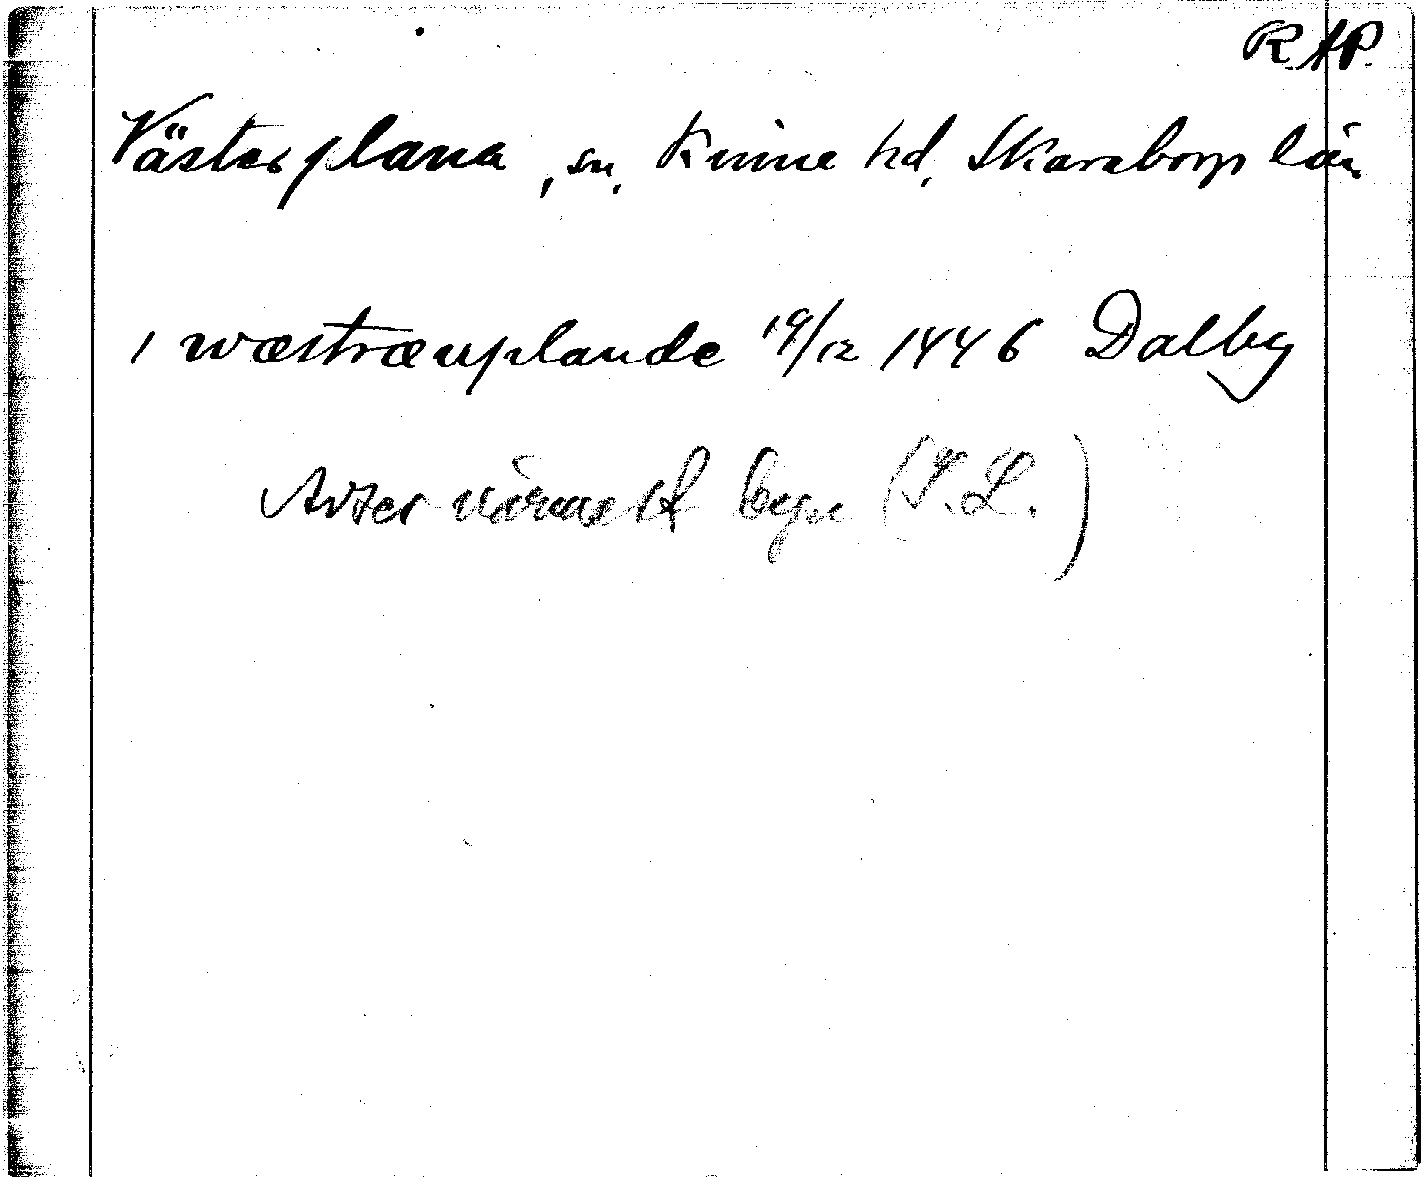 RAP.
Västerplana, sn, Kinne hd, Skaraborgs län
i wæstræuplande 19/12 1446 Dalby
Avser närmast byn (I.L.)